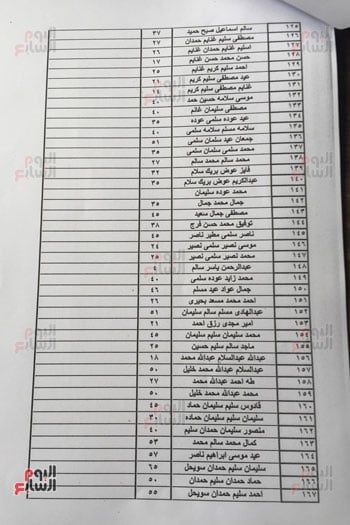 ١٢٥ سالم اسماعيل صبح حميد ٣٧
١٢٦ مصطفى سليم غنايم حمدان ٢٧
١٢٧ اسليم غنايم حمدان غنايم ٢٦
١٢٨ حسن محمد حسن غنايم ١٧
١٢٩ احمد سليم كريم غنايم ٢٥
١٣٠ عيد مصطفى سليم كريم ٢١
١٣١ غنايم مصطفى سليم كريم ١٨
١٣٢ موسى سلامه حسين حمد ٢٠
١٣٣ مصطفى سليمان غانم ٤٠
١٣٤ عيد عوده سلمى عوده ٣٥
١٣٥ سلامه مسلم سلامه سلمى ٤٠
١٣٦ جمعان عيد سلمان سلمى ٥١
١٣٧ محمد سلمى سلمان سلمى ٣٥
١٣٨ محمد سالم محمد سالم ٢٧
١٣٩ فايز عوض بريك سلام ٣٢
١٤٠ عبدالكريم عوض بريك سلام ٣٥
١٤١ محمد عوده سليمان
١٤٢ جمال محمد جمال ٣٥
١٤٣ مصطفى جمال سعيد ٤٥
١٤٤ توفيق محمد حسن فرج ٣٨
١٤٥ ناصر سلمى مطير ناصر ٤٥
١٤٦ موسى نصير سلمى نصير ٢٤
١٤٧ محمد نصير سلمى نصير ٢٥
١٤٨ عبدالرحمن ياسر سالم ٢٠
١٤٩ محمد زايد عوده سلمى ٤٠
١٥٠ جمال عواد عيد مسلم ٤٦
١٥١ احمد محمد مسعد بحيرى ٢٦
١٥٢ عبدالهادى مسلم سالم سليمان ٥١
١٥٣ امير مجدى رزق احمد ٢١
١٥٤ محمد سليمان سليمان ٤٥
١٥٥ ماجد سالم سليم حسين ٢٥
١٥٦ عبدالله عبدالسلام عبدالله محمد ١٨
١٥٧ عبدالسلام عبدالله محمد خليل ٥٠
١٥٨ طه احمد عبدالله محمد ٢٧
١٥٩ محمد عبدالله محمد خليل ٥٠
١٦٠ فادوس سليم سليمان حماده ٤٥
١٦١ سليمان سليم سليمان حماده ٣٠
١٦٢ منصور سليمان حمدان سليم ٦٠
١٦٣ كمال محمد سالم محمد ٥٣
١٦٤ عيد موسى ابراهيم ناصر ٥٧
١٦٥ سليمان سليم حمدان سويحل ٦٥
١٦٦ حماد حمدان سليم حمدان ٥٠
١٦٧ احمد سليم حمدان سويحل ٥٥
اليوم السابع